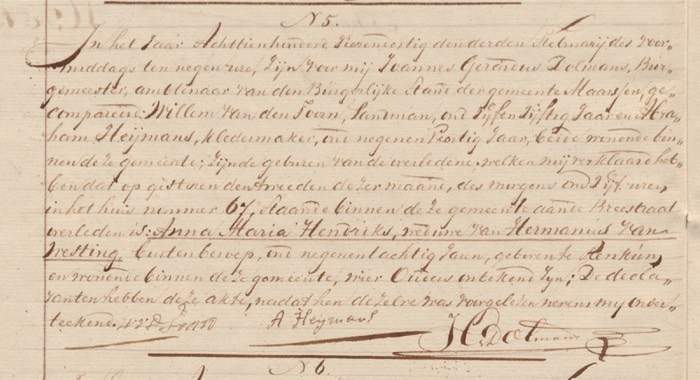 N 5.
In het Jaar Achttienhonderd Vierenveertig den derden Februarij des voor-
middags ten negen ure, Zijn voor mij Joannes Gerardus Dolmans, Bur-
gemeester, ambtenaar van den Burgerlijke Stand der gemeente Maarssen, ge-
compareerd: Willem van den Toorn, Landman, oud Vijf en Vijftig Jaar en Abra-
ham Heijmans, kledermaker, oud negen en Veertig Jaar, beide wonende bin-
nen deze gemeente; zijnde geburen van de overledene, welken mij verklaard heb-
ben dat op gisteren den tweeden dezer maand, des morgens om Vijf uren,
in het huis nummer 67, Staande binnen deze gemeente aan de Breestraat
overleden is: Anna Maria Hendriks, weduwe van Hermanus van
Vresting, buiten beroep, oud negen en tachtig Jaren, geboren te
en wonende binnen deze gemeente, wier Ouders onbekend zijn; De decla-
ranten hebben deze akte, nadat hen dezelve was voorgelezen nevens mij onder-
teekend.
A Heymans
JGDolmans
N 6.